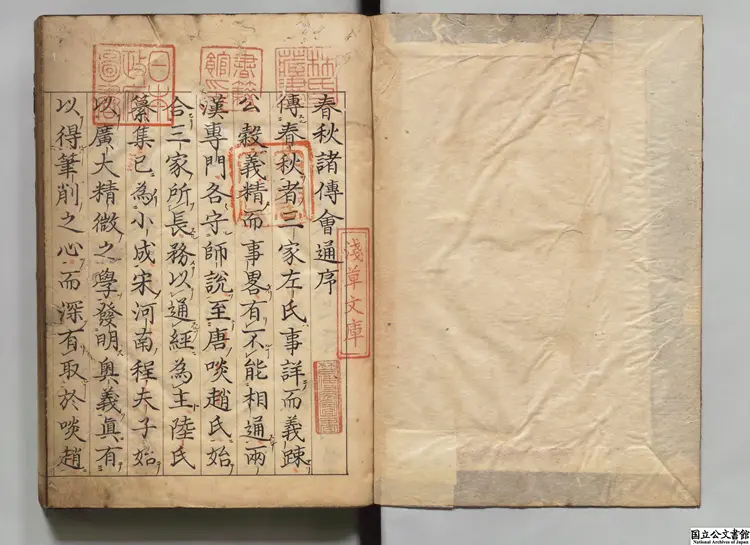 春秋諸傳會通序
傳春秋者三家左氏事詳而義踈
公穀義精而事畧有不能相通兩
漢專門各守師說至唐啖趙氏始
合三家所長務以通經為主陸氏
纂集已為小成宋河南程夫子始
以廣大精微之學發明奧義真有
以得筆削之心而深有取於啖趙
淺草文庫
日本
政
圖書
林氏
國立公文書館
National Archives of Japan